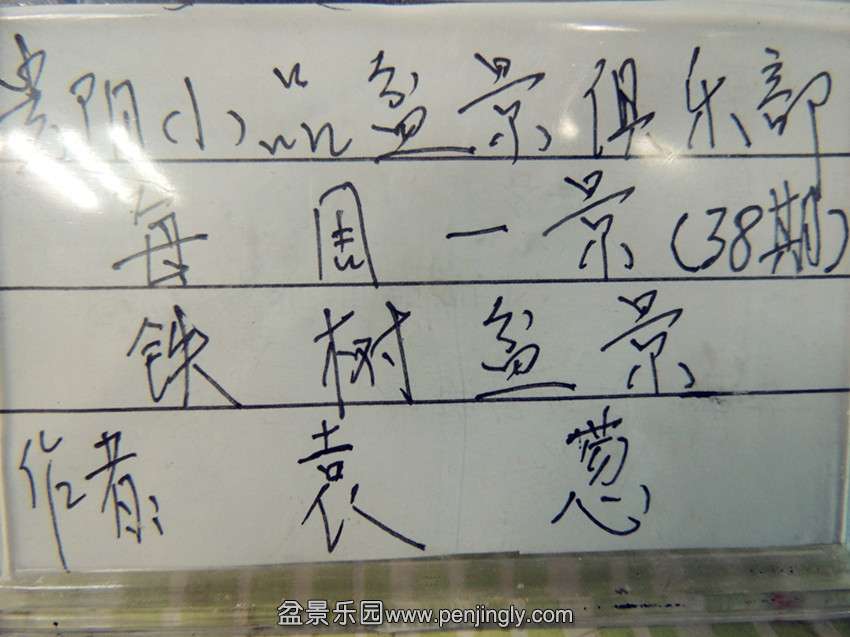 贵阳小品盆景俱乐部
每周一景(38期)
铁树盆景
作者袁葱
盆景乐园www.penjingly.com